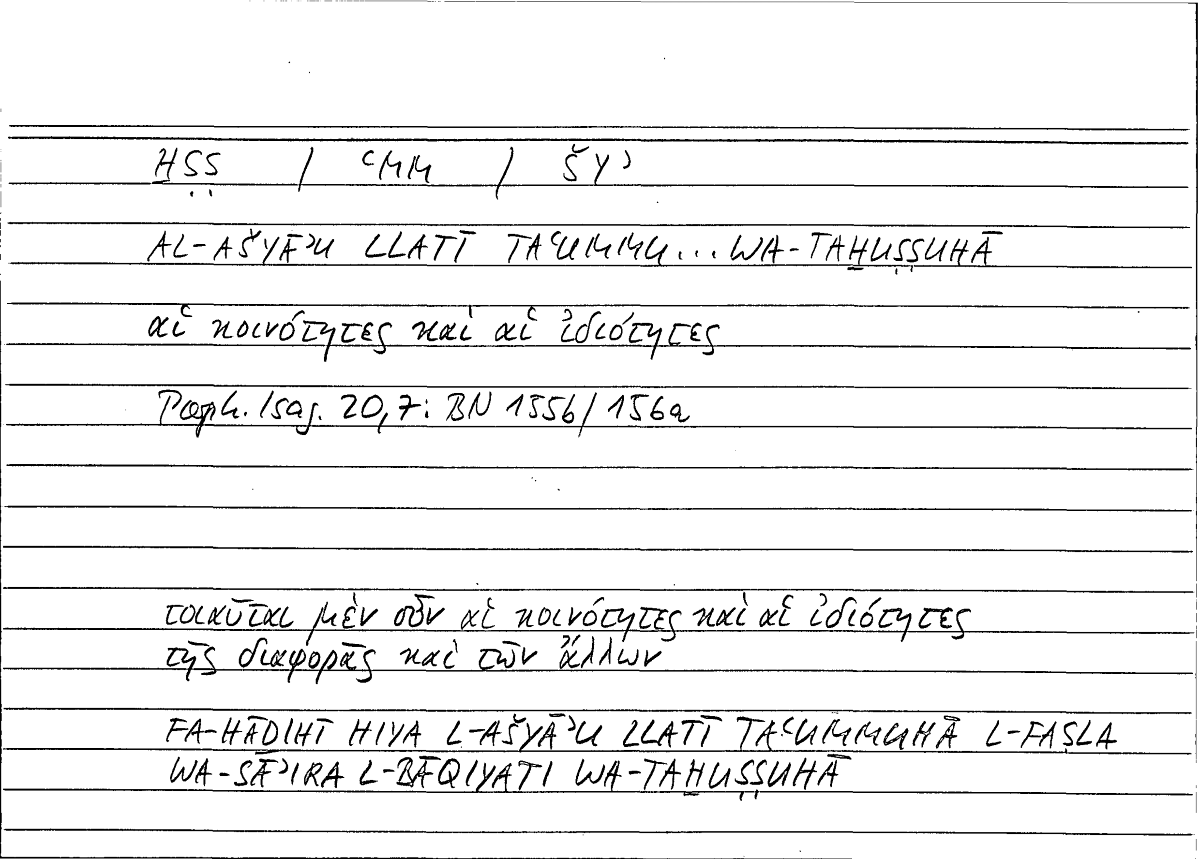 ḪṢṢ / ʿMM / ŠYʾ
AL-AŠYĀʾU LLATĪ TAʿUMMU... WA-TAḪUṢṢUHĀ
αἱ κοινότητες καὶ αἱ ἰδιότητες
Porph. Isag. 20,7: BN 155b/156a
τοιαῦται μὲν οὖν αἱ κοινότητες καὶ αἱ ἰδιότητες
τῆς διαφορᾶς καὶ τῶν ἄλλων
FA-HĀḎIHĪ HIYA L-AŠYĀʾU LLATĪ TAʿUMMUHĀ L-FAṢLA
WA-SĀʾIRA L-BĀQIYATI WA-TAḪUṢṢUHĀ